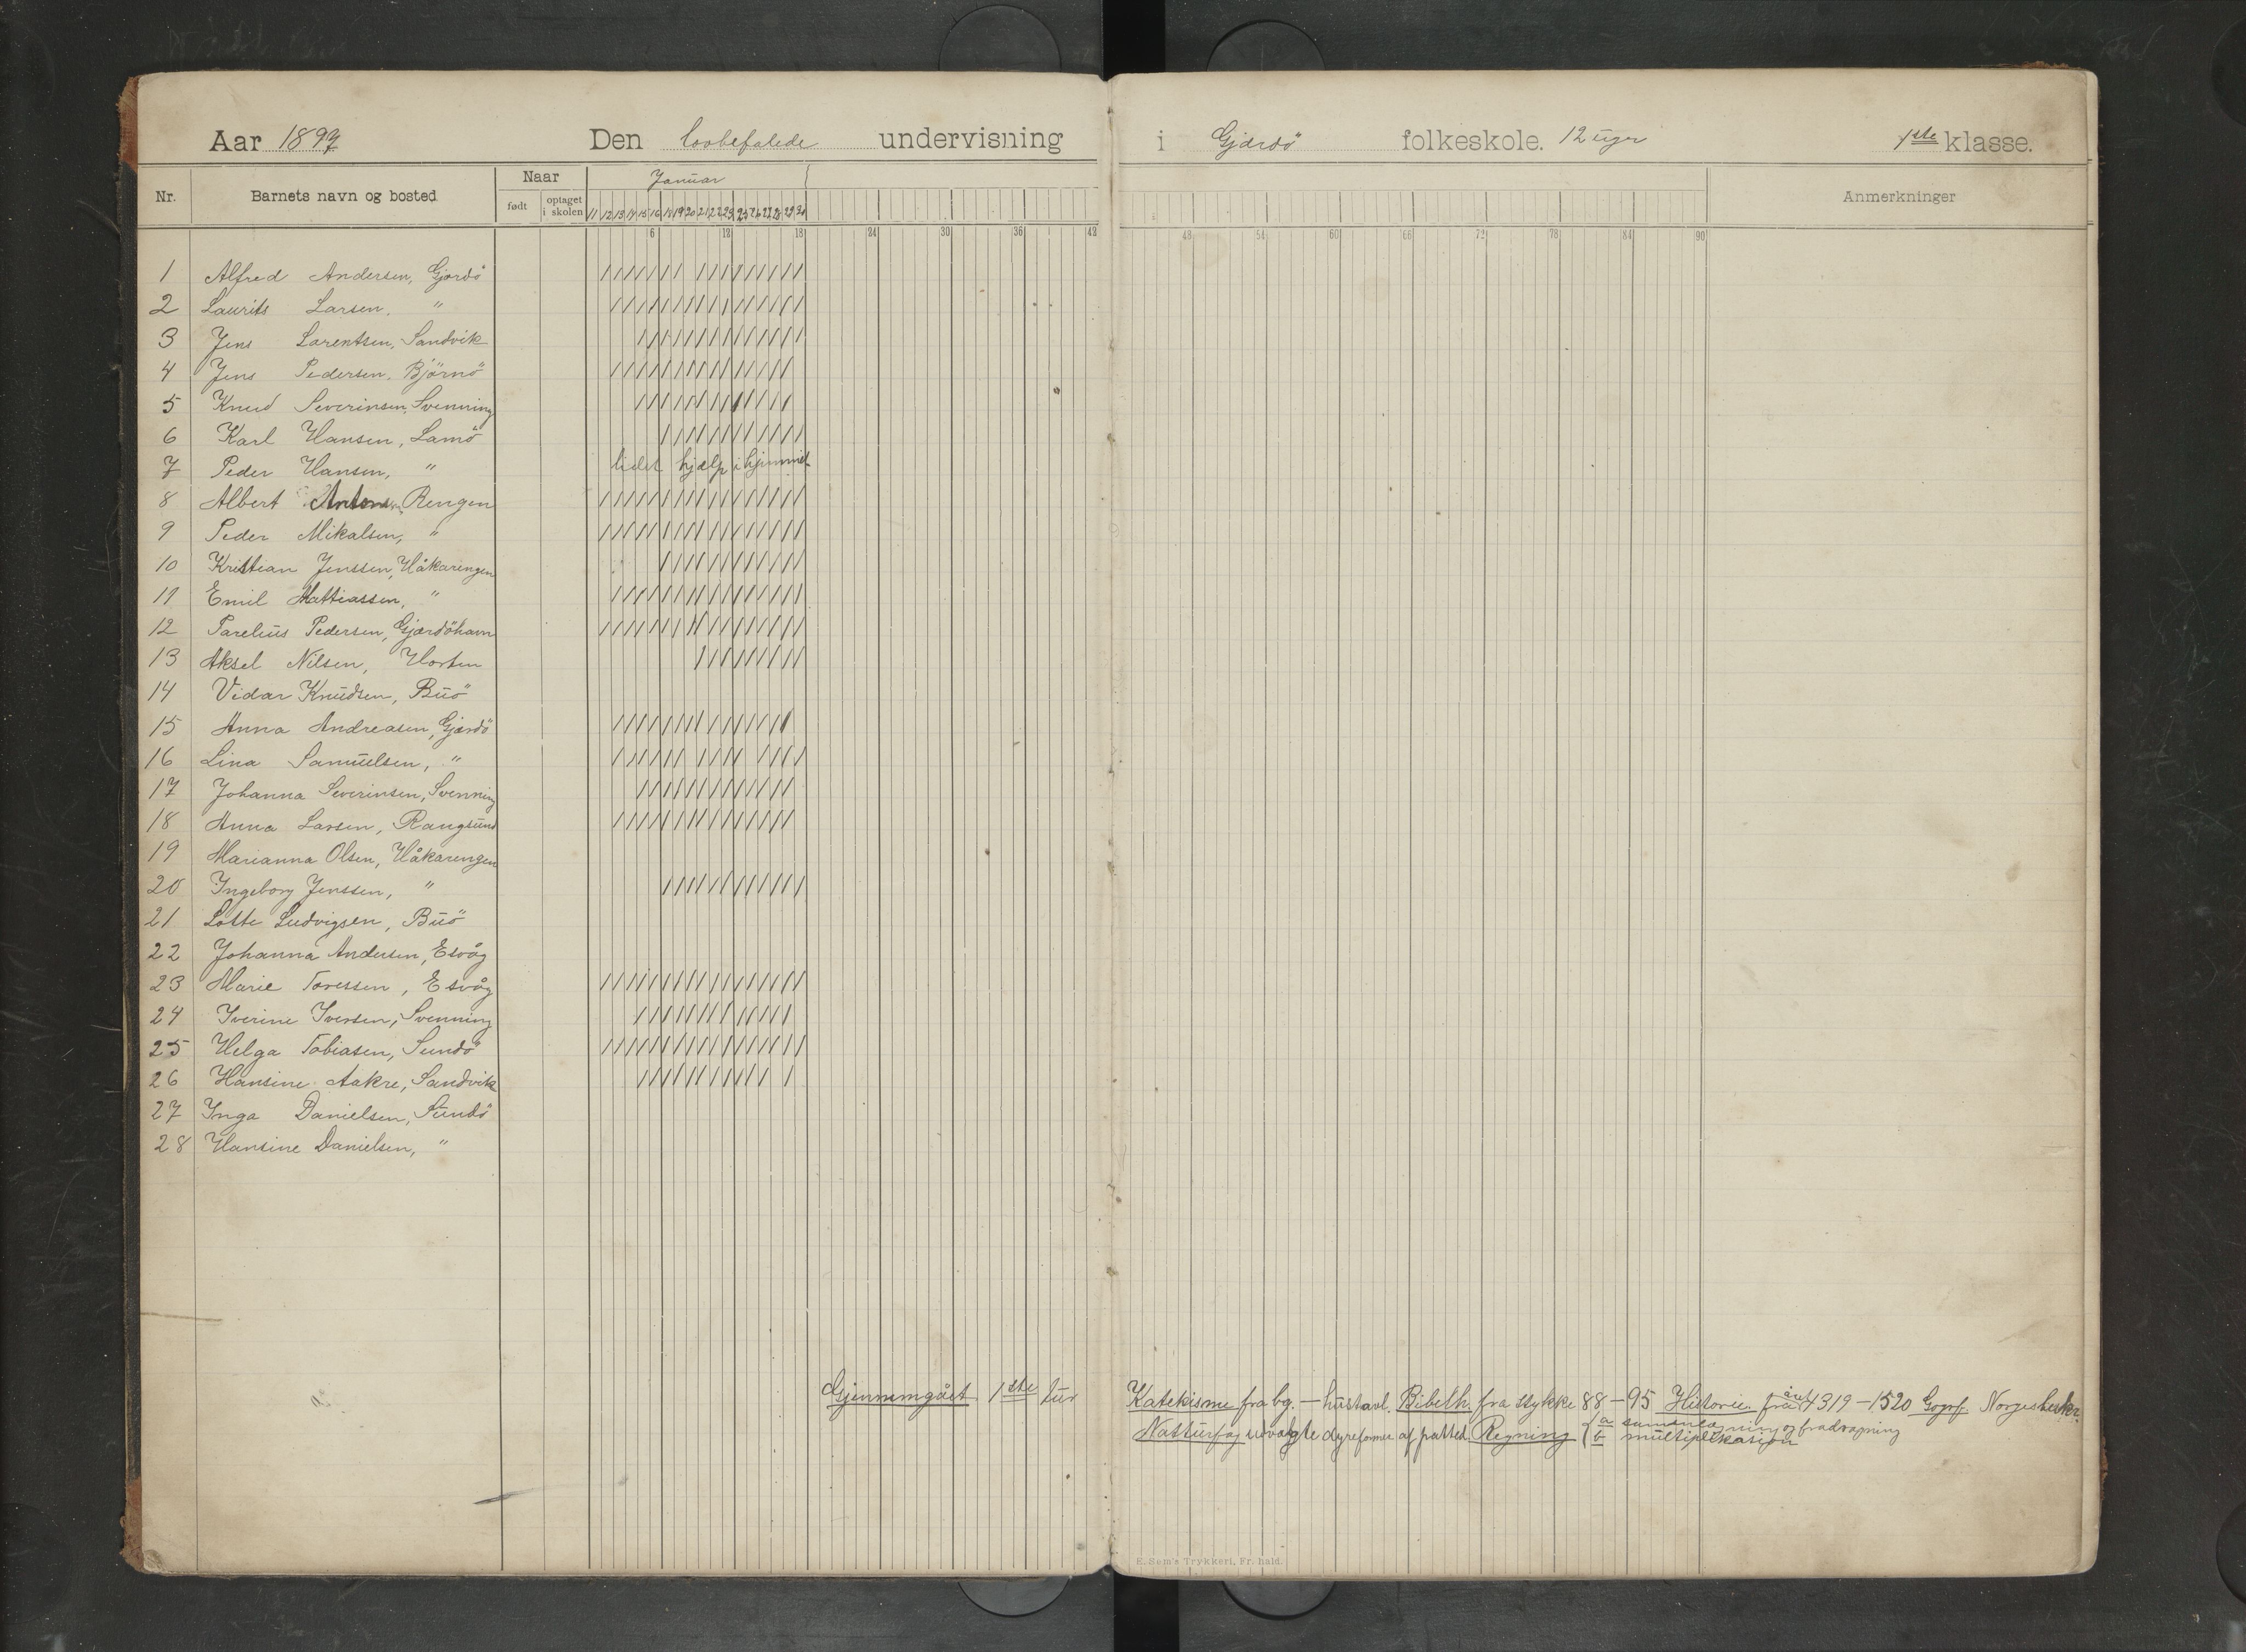 Aar 1897 Den lovbefalede undervisning i Gjærdö folkeskole. 12 uger 1ste klasse.
Nr. Barnets navn og bosted Naar Januar Anmerkninger
født optaget i skolen 11 12 13 14 15 16 18 19 20 21 22 23 25 26 27 28 29 30
6 12 18 24 30 36 42 48 54 60 66 72 78 84 90
1 Alfred Andersen, Gjærdö
2 Laurits Larsen, "
3 Jens Larentsen, Sandvik
4 Jens Pedersen, Björnö
5 Knud Severinsen, Svenning
6 Karl Hansen, Lamö
7 Peder Hansen, " lidet hjælp i hjemmet
8 Albert Antons. Rengen
9 Peder Mikalsen, "
10 Kristian Jenssen, Håkarengen
11 Emil Mattiassen, "
12 Parelius Pedersen, Gjærdöhavn
13 Aksel Nilsen, Horten
14 Vidar Knudsen, Buö
15 Anna Andreasen, Gjærdö
16 Lina Samuelsen, "
17 Johanna Severinsen, Svenning
18 Anna Larsen, Rangsund
19 Marianna Olsen, Håkarengen
20 Ingeborg Jenssen, "
21 Lotte Ludvigsen, Buö
22 Johanna Andersen, Esvåg
23 Marie Toressen, Esvåg
24 Iverine Iversen, Svenning
25 Helga Tobiasen, Sundö
26 Hansine Aakre, Sandvik
27 Inga Danielsen, Sundö
28 Hansine Danielsen, "
Gjennemgået 1ste tur Katekisme fra bg. — hustavl. Bibelh. fra stykke 88–95 Historie fra året 1319–1520 Gogrf. Norges beskr.
Natturfag udvalgte dyreformer af patted. Regning { a sammenlægning og fradragning
b multiplikasjon
E. Sem's Trykkeri, Fr. hald.